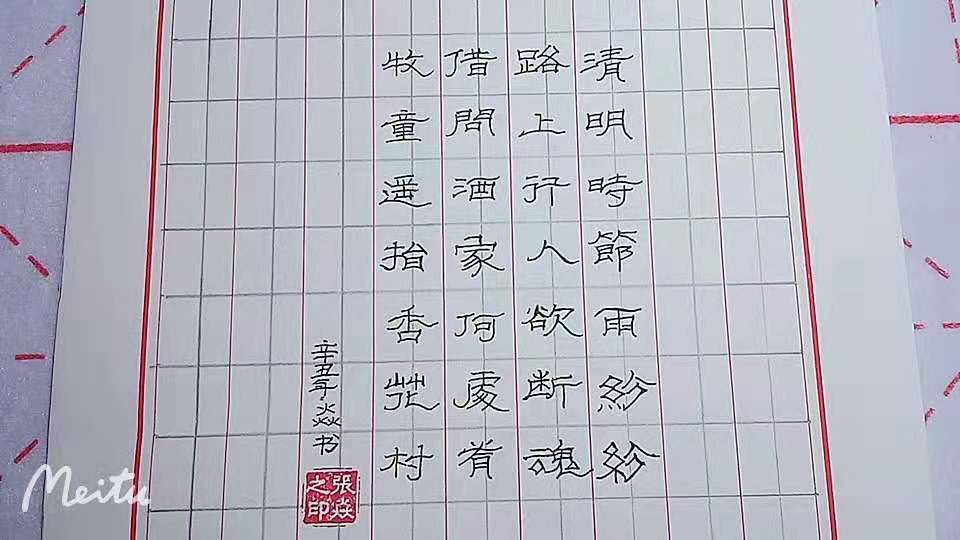 清明時節雨紛紛
路上行人欲断魂
借問酒家何處有
牧童遥指杏花村
辛丑年焱书
張焱之印
Meitu